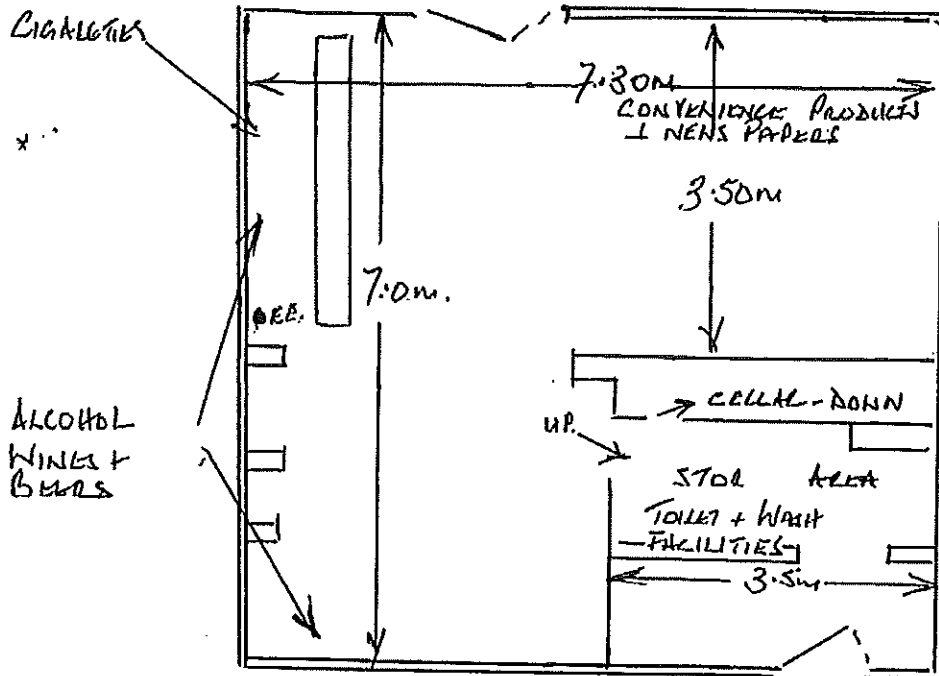 CIGARETTES
7.30m
CONVENIENCE PRODUCTS
+ NEWS PAPERS
3.50m
7.0m.
CELLAR - DOWN
ALCOHOL
WINES +
BEERS
UP.
STOR AREA
TOILET + WASH
FACILITIES
3.5m